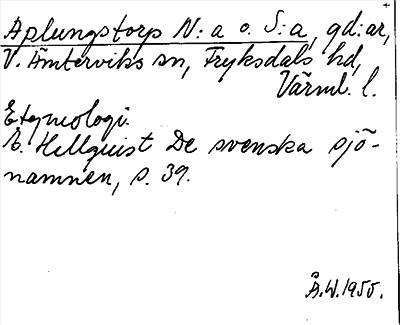 Aplungstorp N:a o. S:a, gd:ar,
V. Ämterviks sn, Fryksdals hd,
Värml. l.
Etymologi.
E. Hellquist De svenska sjö-
namnen, s. 39.
Å.W. 1955.